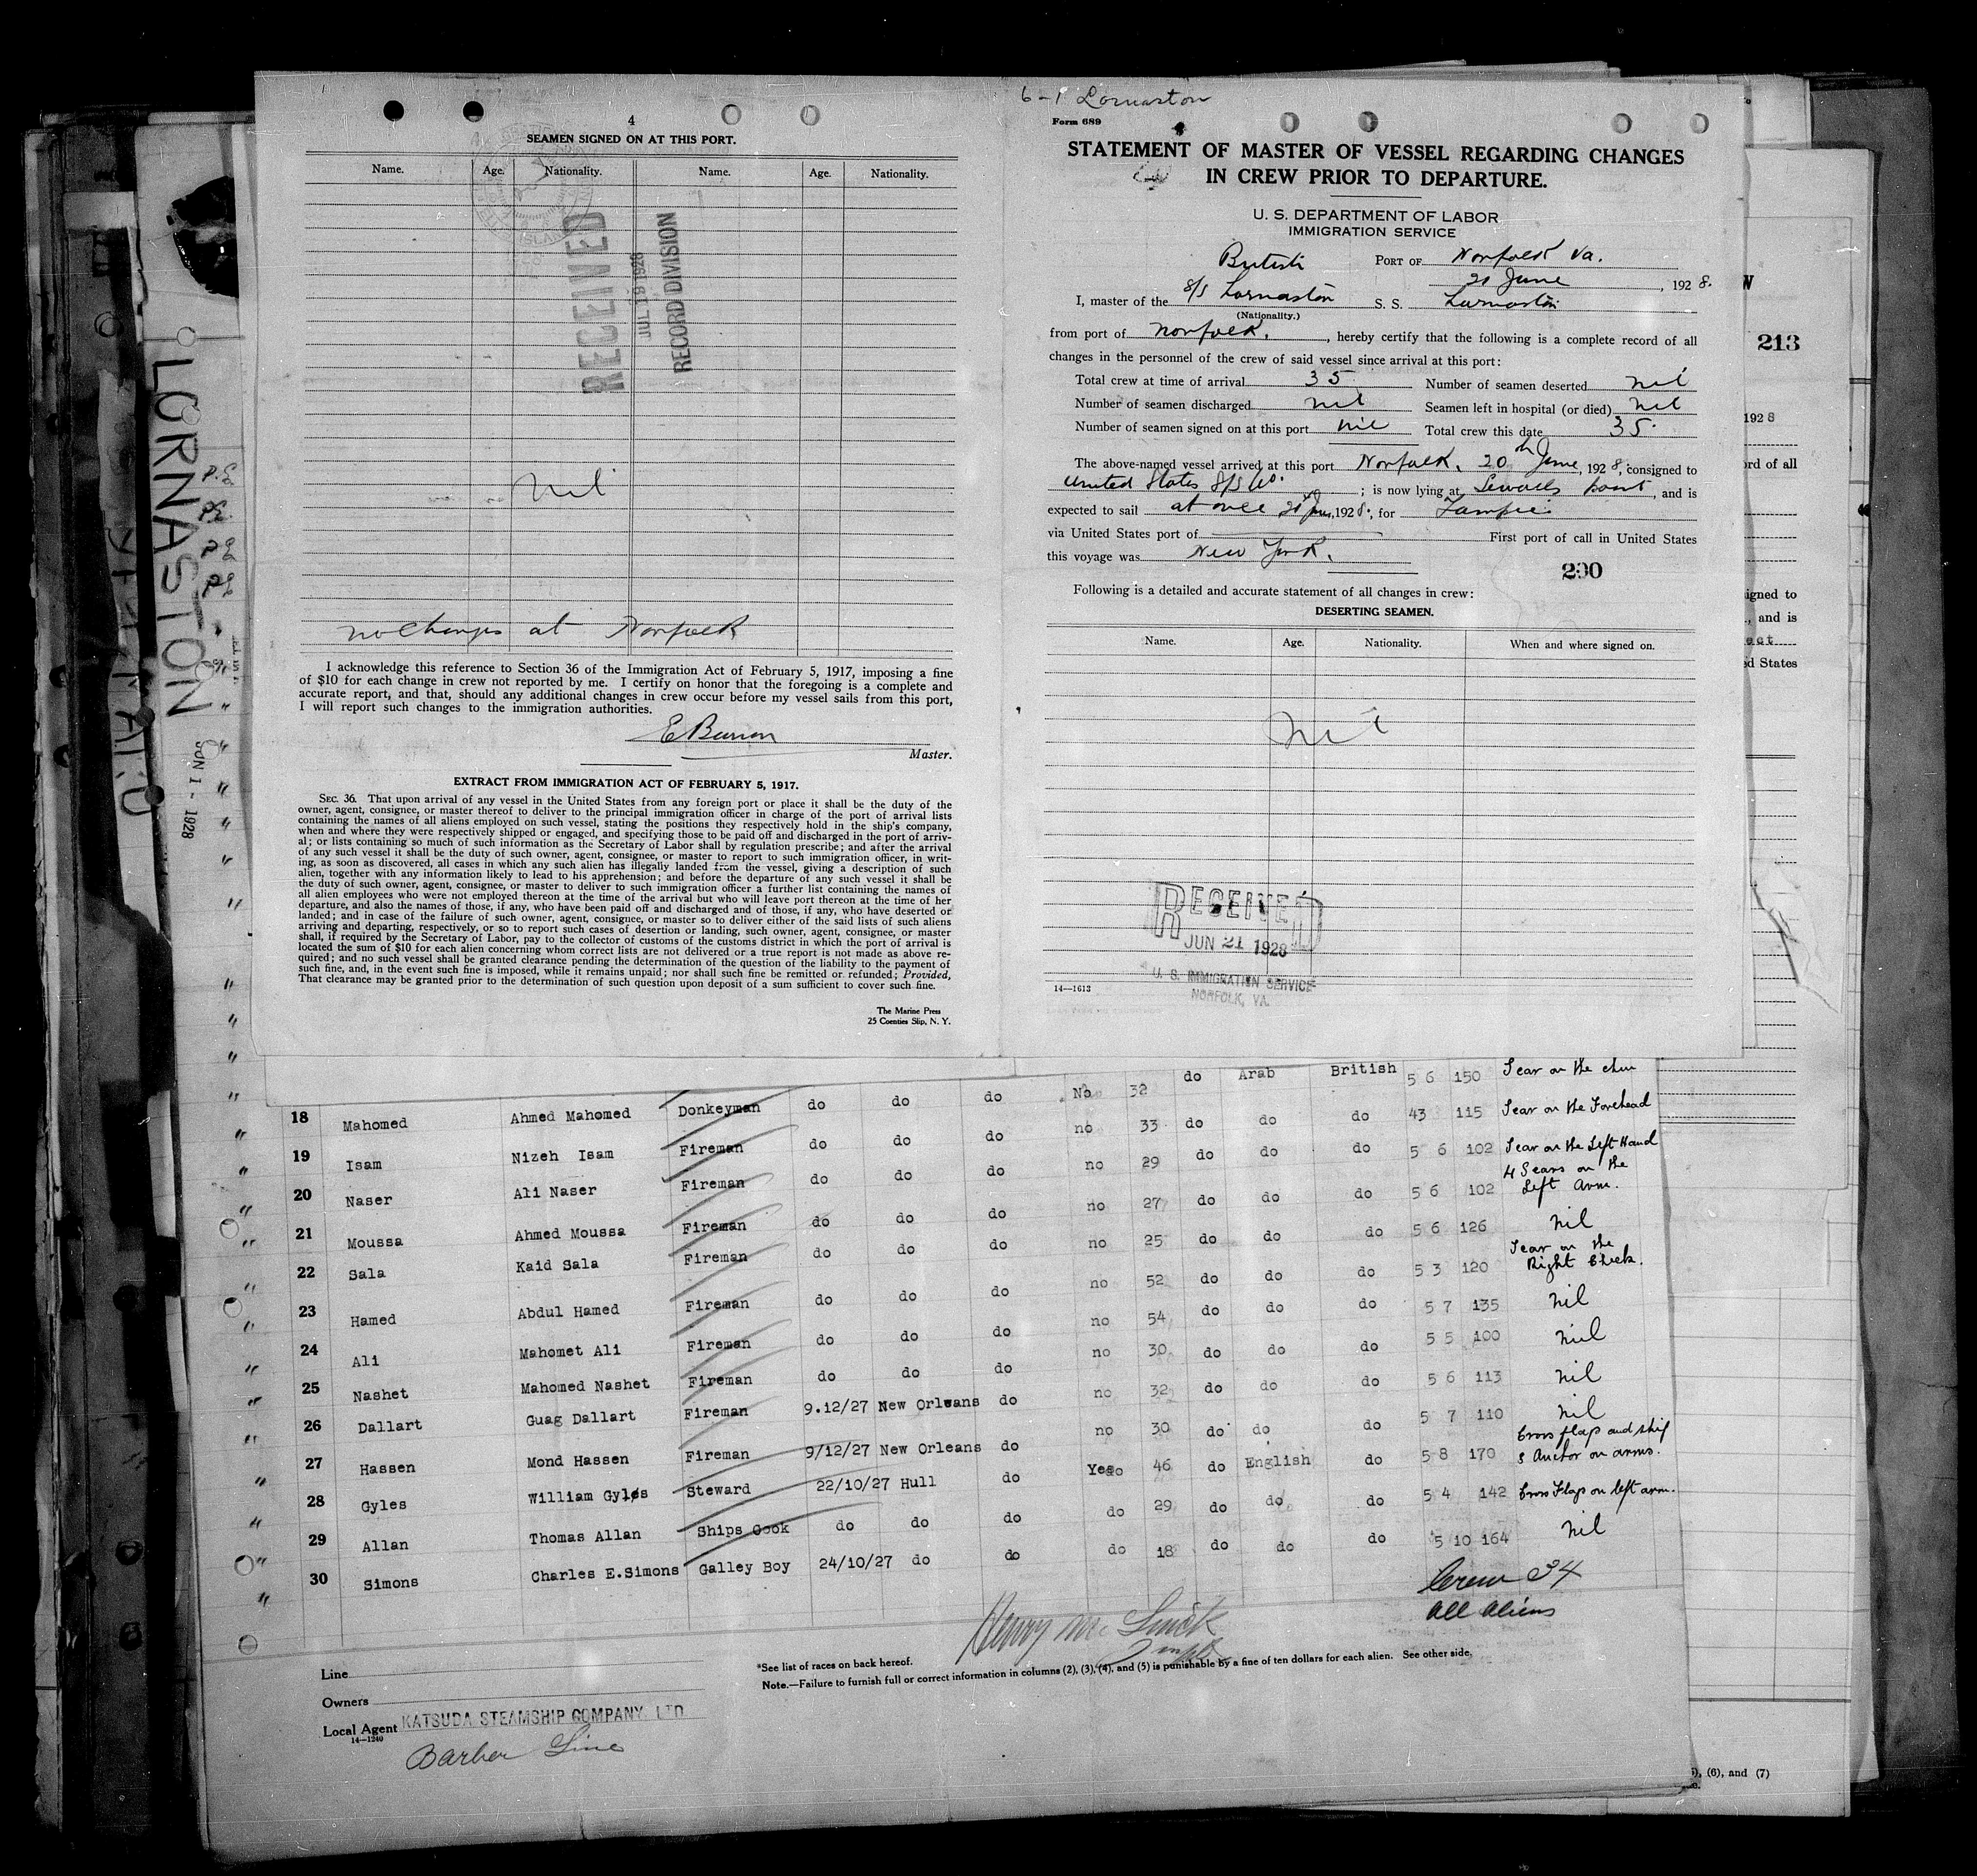 6-1 Lornaston
4
SEAMEN SIGNED ON AT THIS PORT.
Name. Age. Nationality. Name. Age. Nationality.
RECEIVED
RECORD DIVISION
nil
no changes at Norfolk
I acknowledge this reference to Section 36 of the Immigration Act of February 5, 1917, imposing a fine
of $10 for each change in crew not reported by me. I certify on honor that the foregoing is a complete and
accurate report, and that, should any additional changes in crew occur before my vessel sails from this port,
I will report such changes to the immigration authorities.
Master.
EXTRACT FROM IMMIGRATION ACT OF FEBRUARY 5, 1917.
SEC. 36. That upon arrival of any vessel in the United States from any foreign port or place it shall be the duty of the
owner, agent, consignee, or master thereof to deliver to the principal immigration officer in charge of the port of arrival lists
containing the names of all aliens employed on such vessel, stating the positions they respectively hold in the ship's company,
when and where they were respectively shipped or engaged, and specifying those to be paid off and discharged in the port of arriv-
al; or lists containing so much of such information as the Secretary of Labor shall by regulation prescribe; and after the arrival
of any such vessel it shall be the duty of such owner, agent, consignee, or master to report to such immigration officer, in writ-
ing, as soon as discovered, all cases in which any such alien has illegally landed from the vessel, giving a description of such
alien, together with any information likely to lead to his apprehension; and before the departure of any such vessel it shall be
the duty of such owner, agent, consignee, or master to deliver to such immigration officer a further list containing the names of
all alien employees who were not employed thereon at the time of the arrival but who will leave port thereon at the time of her
departure, and also the names of those, if any, who have been paid off and discharged and of those, if any, who have deserted or
landed; and in case of the failure of such owner, agent, consignee, or master so to deliver either of the said lists of such aliens
arriving and departing, respectively, or so to report such cases of desertion or landing, such owner, agent, consignee, or master
shall, if required by the Secretary of Labor, pay to the collector of customs of the customs district in which the port of arrival is
located the sum of $10 for each alien concerning whom correct lists are not delivered or a true report is not made as above re-
quired; and no such vessel shall be granted clearance pending the determination of the question of the liability to the payment of
such fine, and, in the event such fine is imposed, while it remains unpaid; nor shall such fine be remitted or refunded; Provided,
That clearance may be granted prior to the determination of such question upon deposit of a sum sufficient to cover such fine.
The Marine Press
25 Coenties Slip, N. Y.
Form 689
STATEMENT OF MASTER OF VESSEL REGARDING CHANGES
IN CREW PRIOR TO DEPARTURE.
U. S. DEPARTMENT OF LABOR
IMMIGRATION SERVICE
British PORT OF Norfolk Va.
21 June, 1928.
I, master of the S/S Lornaston S. S. Lornaston
(Nationality.)
from port of Norfolk., hereby certify that the following is a complete record of all
changes in the personnel of the crew of said vessel since arrival at this port:
Total crew at time of arrival 35 Number of seamen deserted nil
Number of seamen discharged nil Seamen left in hospital (or died) nil
Number of seamen signed on at this port nil Total crew this date 35.
The above-named vessel arrived at this port Norfolk, 20th June, 1928, consigned to
United States S/S Co.; is now lying at Sewells point, and is
expected to sail at once 21 June, 1928., for
via United States port of First port of call in United States
this voyage was New York.
200
Following is a detailed and accurate statement of all changes in crew:
DESERTING SEAMEN.
Name. Age. Nationality. When and where signed on.
nil
RECEIVED
JUN 21 1928
U. S. IMMIGRATION SERVICE
NORFOLK, VA.
14—1613
LORNASTON
JUN 1 - 1928
213
1928
ord of all
igned to
, and is
ect
ed States
No 32 do Arab British 5 6 150 Scar on the chin
18 Mahomed Ahmed Mahomed Donkeyman do do do no 33 do do do 43 115 Scar on the Forehead
19 Isam Nizeh Isam Fireman do do do no 29 do do do 5 6 102 Scar on the Left Hand
20 Naser Ali Naser Fireman do do do no 27 do do do 5 6 102 4 Scars on the Left Arm.
21 Moussa Ahmed Moussa Fireman do do do no 25 do do do 5 6 126 nil
22 Sala Kaid Sala Fireman do do do no 52 do do do 5 3 120 Scar on the Right Cheek.
23 Hamed Abdul Hamed Fireman do do do no 54 do do do 5 7 135 nil
24 Ali Mahomet Ali Fireman do do do no 30 do do do 5 5 100 nil
25 Nashet Mahomed Nashet Fireman do do do no 32 do do do 5 6 113 nil
26 Dallart Guag Dallart Fireman 9.12/27 New Orleans do no 30 do do do 5 7 110 nil
27 Hassen Mond Hassen Fireman 9/12/27 New Orleans do Yes 46 do English do 5 8 170 Cross flags and ship & Anchor on arms.
28 Gyles William Gyles Steward 22/10/27 Hull do do 29 do do do 5 4 142 Cross Flags on left arm.
29 Allan Thomas Allan Ships Cook do do do do 18 do do do 5 10 164 nil
30 Simons Charles E.Simons Galley Boy 24/10/27 do do
Crew 34
All Aliens
Line
Owners
Local Agent KATSUDA STEAMSHIP COMPANY, LTD
14—1240
Barber Line
*See list of races on back hereof.
Note.—Failure to furnish full or correct information in columns (2), (3), (4), and (5) is punishable by a fine of ten dollars for each alien. See other side.
(6), and (7)